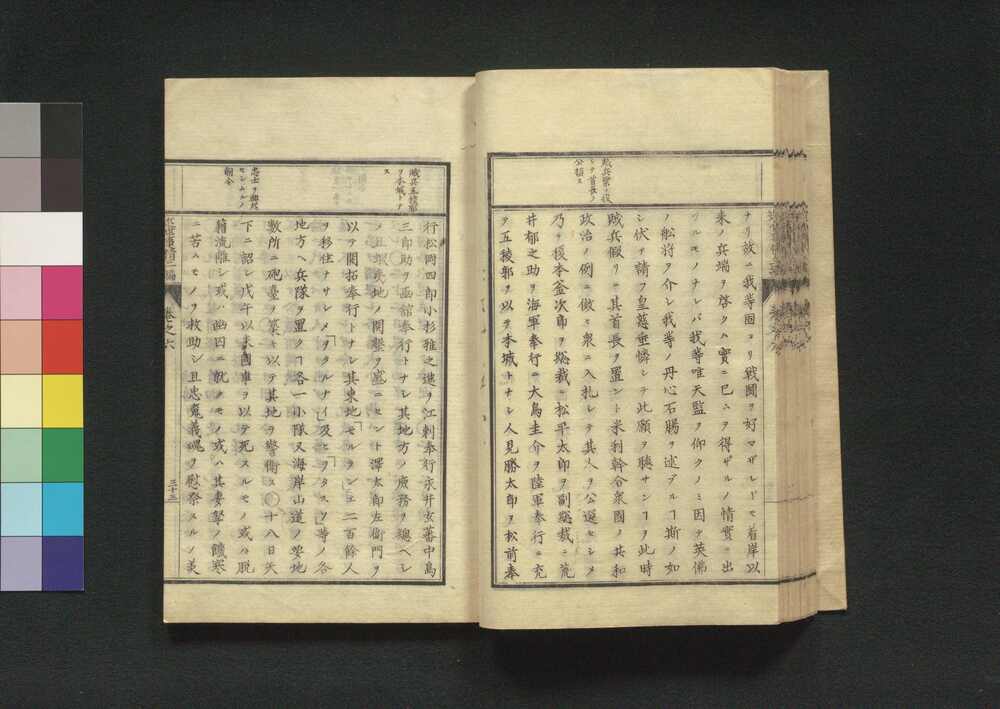 賊兵衆ヲ投
シテ首長ノ
公撰ス
ナリ故ニ我等固ヨリ戦闘ヲ好マザレドモ着岸以
来ノ兵端ヲ啓クハ實ニ已ムヲ得ザルノ情實ニ出
ヅルモノナレバ我等唯天監ヲ仰クノミ因テ英佛
ノ舩将ヲ介シ我等ノ丹心石腸ヲ述ブルコト斯ノ如
シ伏テ請フ皇慈垂憐シテ此願ヲ聴サンコトヲ此時
賊兵假リニ其首長ヲ置ント米利幹合衆國ノ共和
政治ノ例ニ倣ヒ衆ニ入札シテ其人ヲ公選セシメ
乃チ榎本釜次郎ヲ総裁ニ松平太郎ヲ副総裁ニ荒
井郁之助ヲ海軍奉行ニ大鳥圭介ヲ陸軍奉行ニ充
テ五稜郭ヲ以テ本城トナシ人見勝太郎ヲ松前奉
賊兵五稜郭
ヲ本城トナ
ス
忠士ヲ
朝令
行松岡四郎小杉雅之進ヲ江刺奉行永井玄蕃中島
三郎助ヲ函舘奉行トナシ其地方ノ庶務ヲ總ベシ
メ且蝦夷地ノ開墾ヲ基ニセント澤太郎左衛門ヲ
以テ開拓奉行トナシ其東地「モルラン」エ二百餘人
ヲ移住ナサシメ「クルナイ」及ヒ「ヲタスツ」等ノ各
地方ヘ兵隊ヲ置クコト各一小隊又海岸山道ノ要地
數所ニ砲臺ヲ築キ以テ其地ヲ警衛ス〇十八日天
下ニ詔シ戊午以来國事ヲ以テ死スルモノ或ハ脱
籍流離シ或ハ幽囚ニ就クモノ或ハ其妻孥ノ饑寒
ニ苦ムモノヲ救助シ且忠魂義魂ヲ慰祭スルノ美
巻之六
三十三